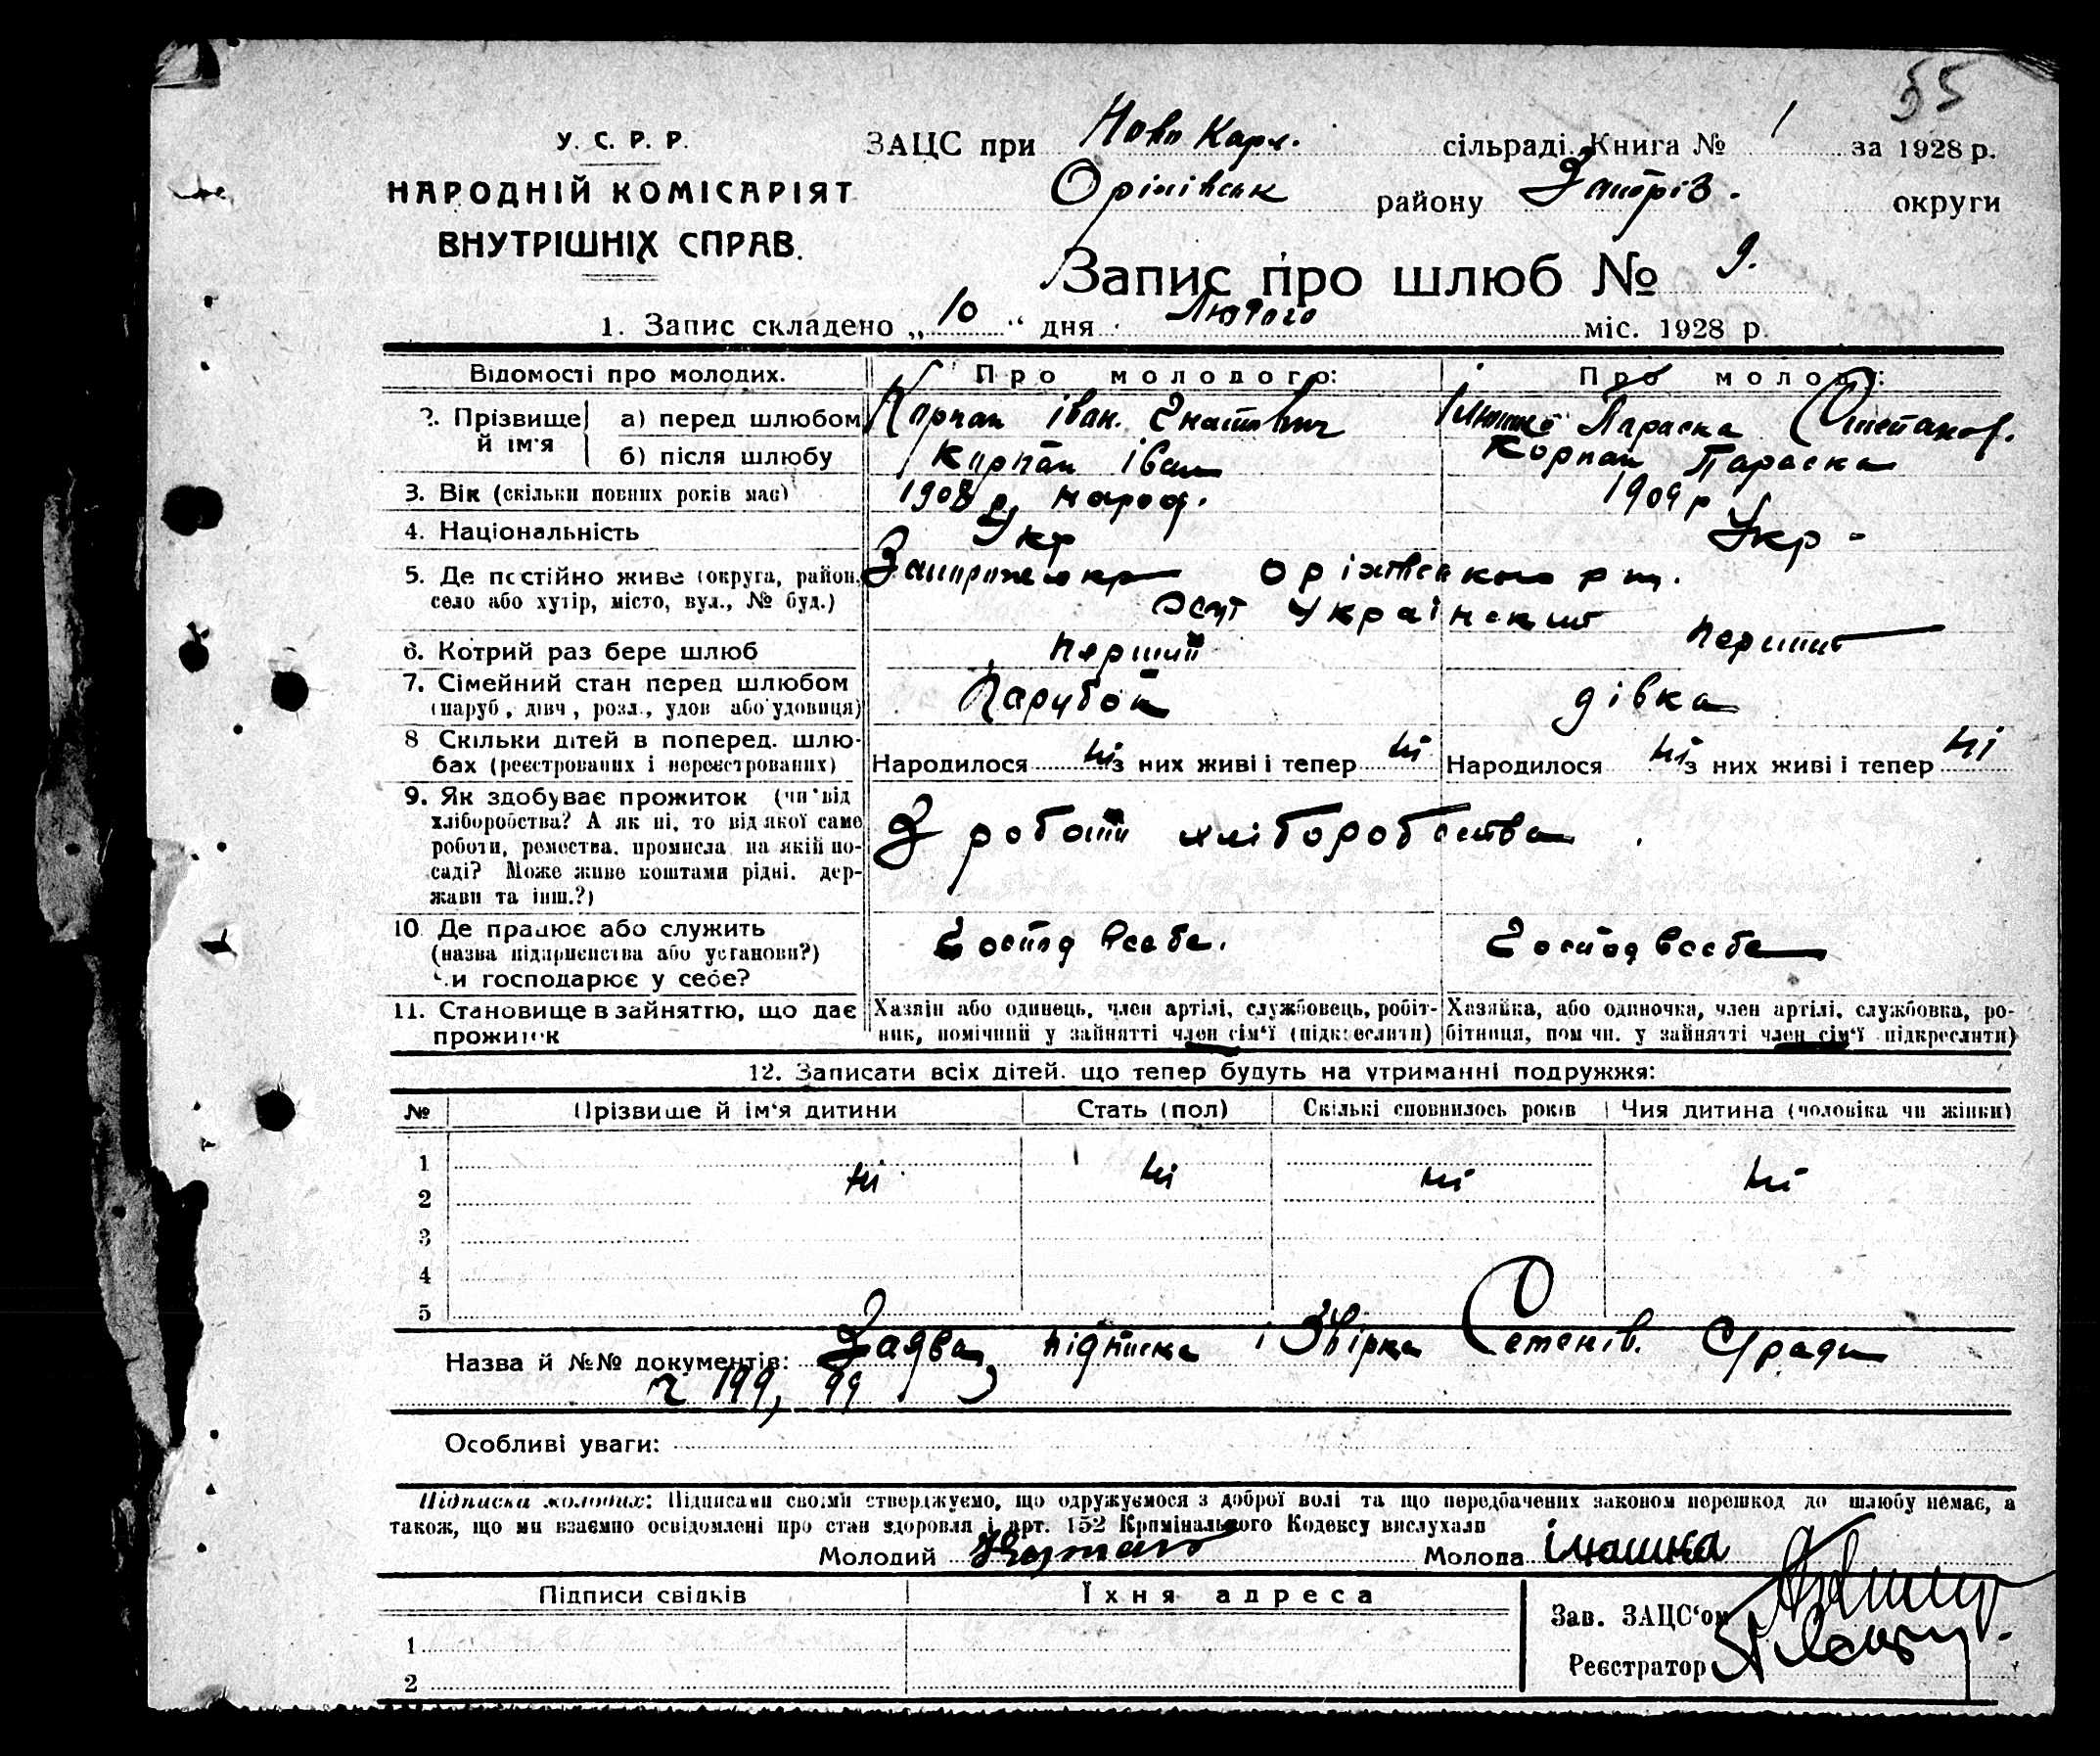 55
У. С. Р. Р.
НАРОДНІЙ КОМІСАРІЯТ
ВНУТРІШНІХ СПРАВ.
ЗАЦС при Ново Карл. сільраді. Книга № 1 за 1928 р.
Оріхівськ району Запоріз. округи
Запис про шлюб № 9.
1. Запис складено „10“ дня Лютого міс. 1928 р.
Відомості про молодих. Про молодого: Про молоду:
2. Прізвище й ім'я а) перед шлюбом Корпан Іван Параска Степанов.
б) після шлюбу Корпан Іван Корпан Параска
3. Вік (скільки повних років має) 1908 р. народ. 1909 р
4. Національність Укр Укр -
5. Де постійно живе (округа, район, село або хутір, місто, вул., № буд.) Запорож окр Оріхівського
6. Котрий раз бере шлюб Перший Перший
7. Сімейний стан перед шлюбом Парубок дівка
(паруб, дівч, розл., удов або удовиця)
8 Скільки дітей в поперед. шлюбах (реєстрованих і нереєстрованих) Народилося ні з них живі і тепер ні Народилося ні з них живі і тепер ні
9. Як здобуває прожиток (чи від
хліборобства? А як ні, то від якої саме
роботи, ремества, промисла на якій по-
саді? Може живе коштами рідні. дер-
жави та інш.?)
З роботи хліборобства
10 Де працює або служить Господ всебе. Господ всебе
(назва підприємства або установи?)
Чи господарює у себе?
11. Становище в зайняттю, що дає прожиток
Хазяїн або одинець, член артілі, службовець, робіт-
ник, помічний у зайнятті член сім'ї (підкреслити)
Хазяйка, або одиночка, член артілі, службовка, ро-
бітниця, помічн. у зайнятті член сім'ї підкреслити)
12. Записати всіх дітей. що тепер будуть на утриманні подружжя:
№ Прізвище й ім'я дитини Стать (пол) Скількі сповнилось років Чия дитина (чоловіка чи жінки)
1
ні ні ні ні
2
3
4
5
Назва й №№ документів: Заява, підписка і Сради
199, 99
Особливі уваги:
Підписка молодих: Підписами своїми стверджуємо, що одружуємося з доброї волі та що передбачених законом перешкод до шлюбу немає, а
також, що ми взаємно освідомлені про стан здоровля і арт. 152 Кримінального Кодексу вислухали
Молодий Молода
Підписи свідків Їхня адреса
1
2
Зав. ЗАЦС'ом
Реєстратор